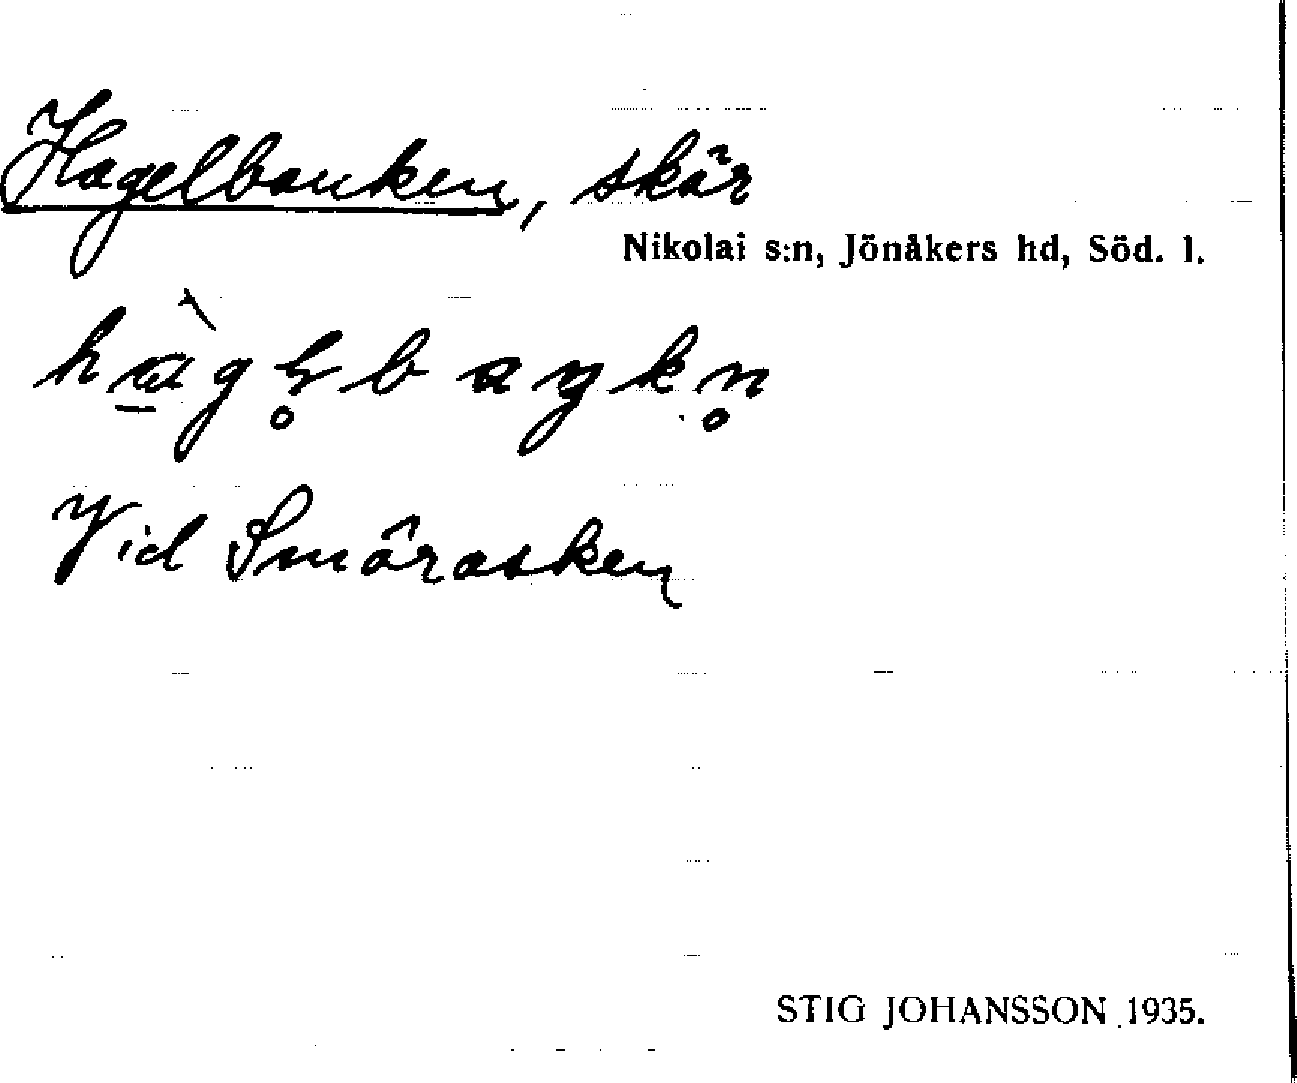 Hagelbanken, skär
Nikolai s:n, Jönåkers hd, Söd. l.
Vid Smörasken
STIG JOHANSSON 1935.